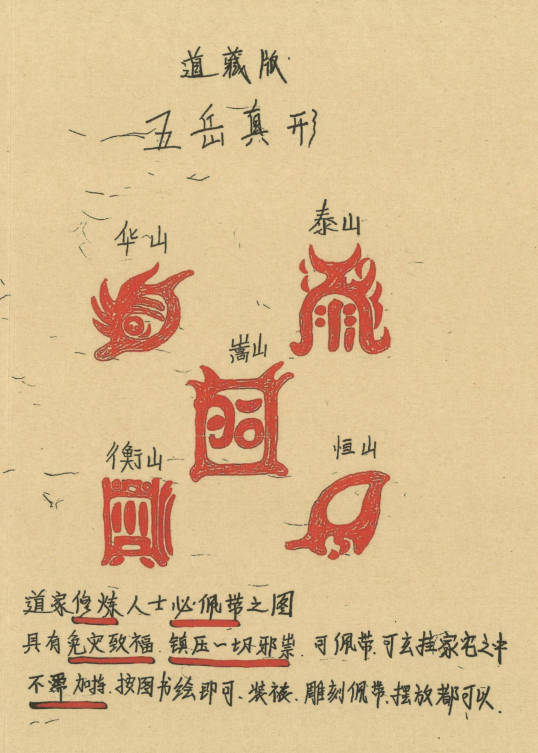 道藏版
五岳真形
华山
泰山
嵩山
衡山
恒山
道家修炼人士必佩带之图
具有免灾致福 镇压一切邪祟. 可佩带.可玄挂家宅之中
不需加持.按图书绘即可、装裱.雕刻佩带.摆放都可以.